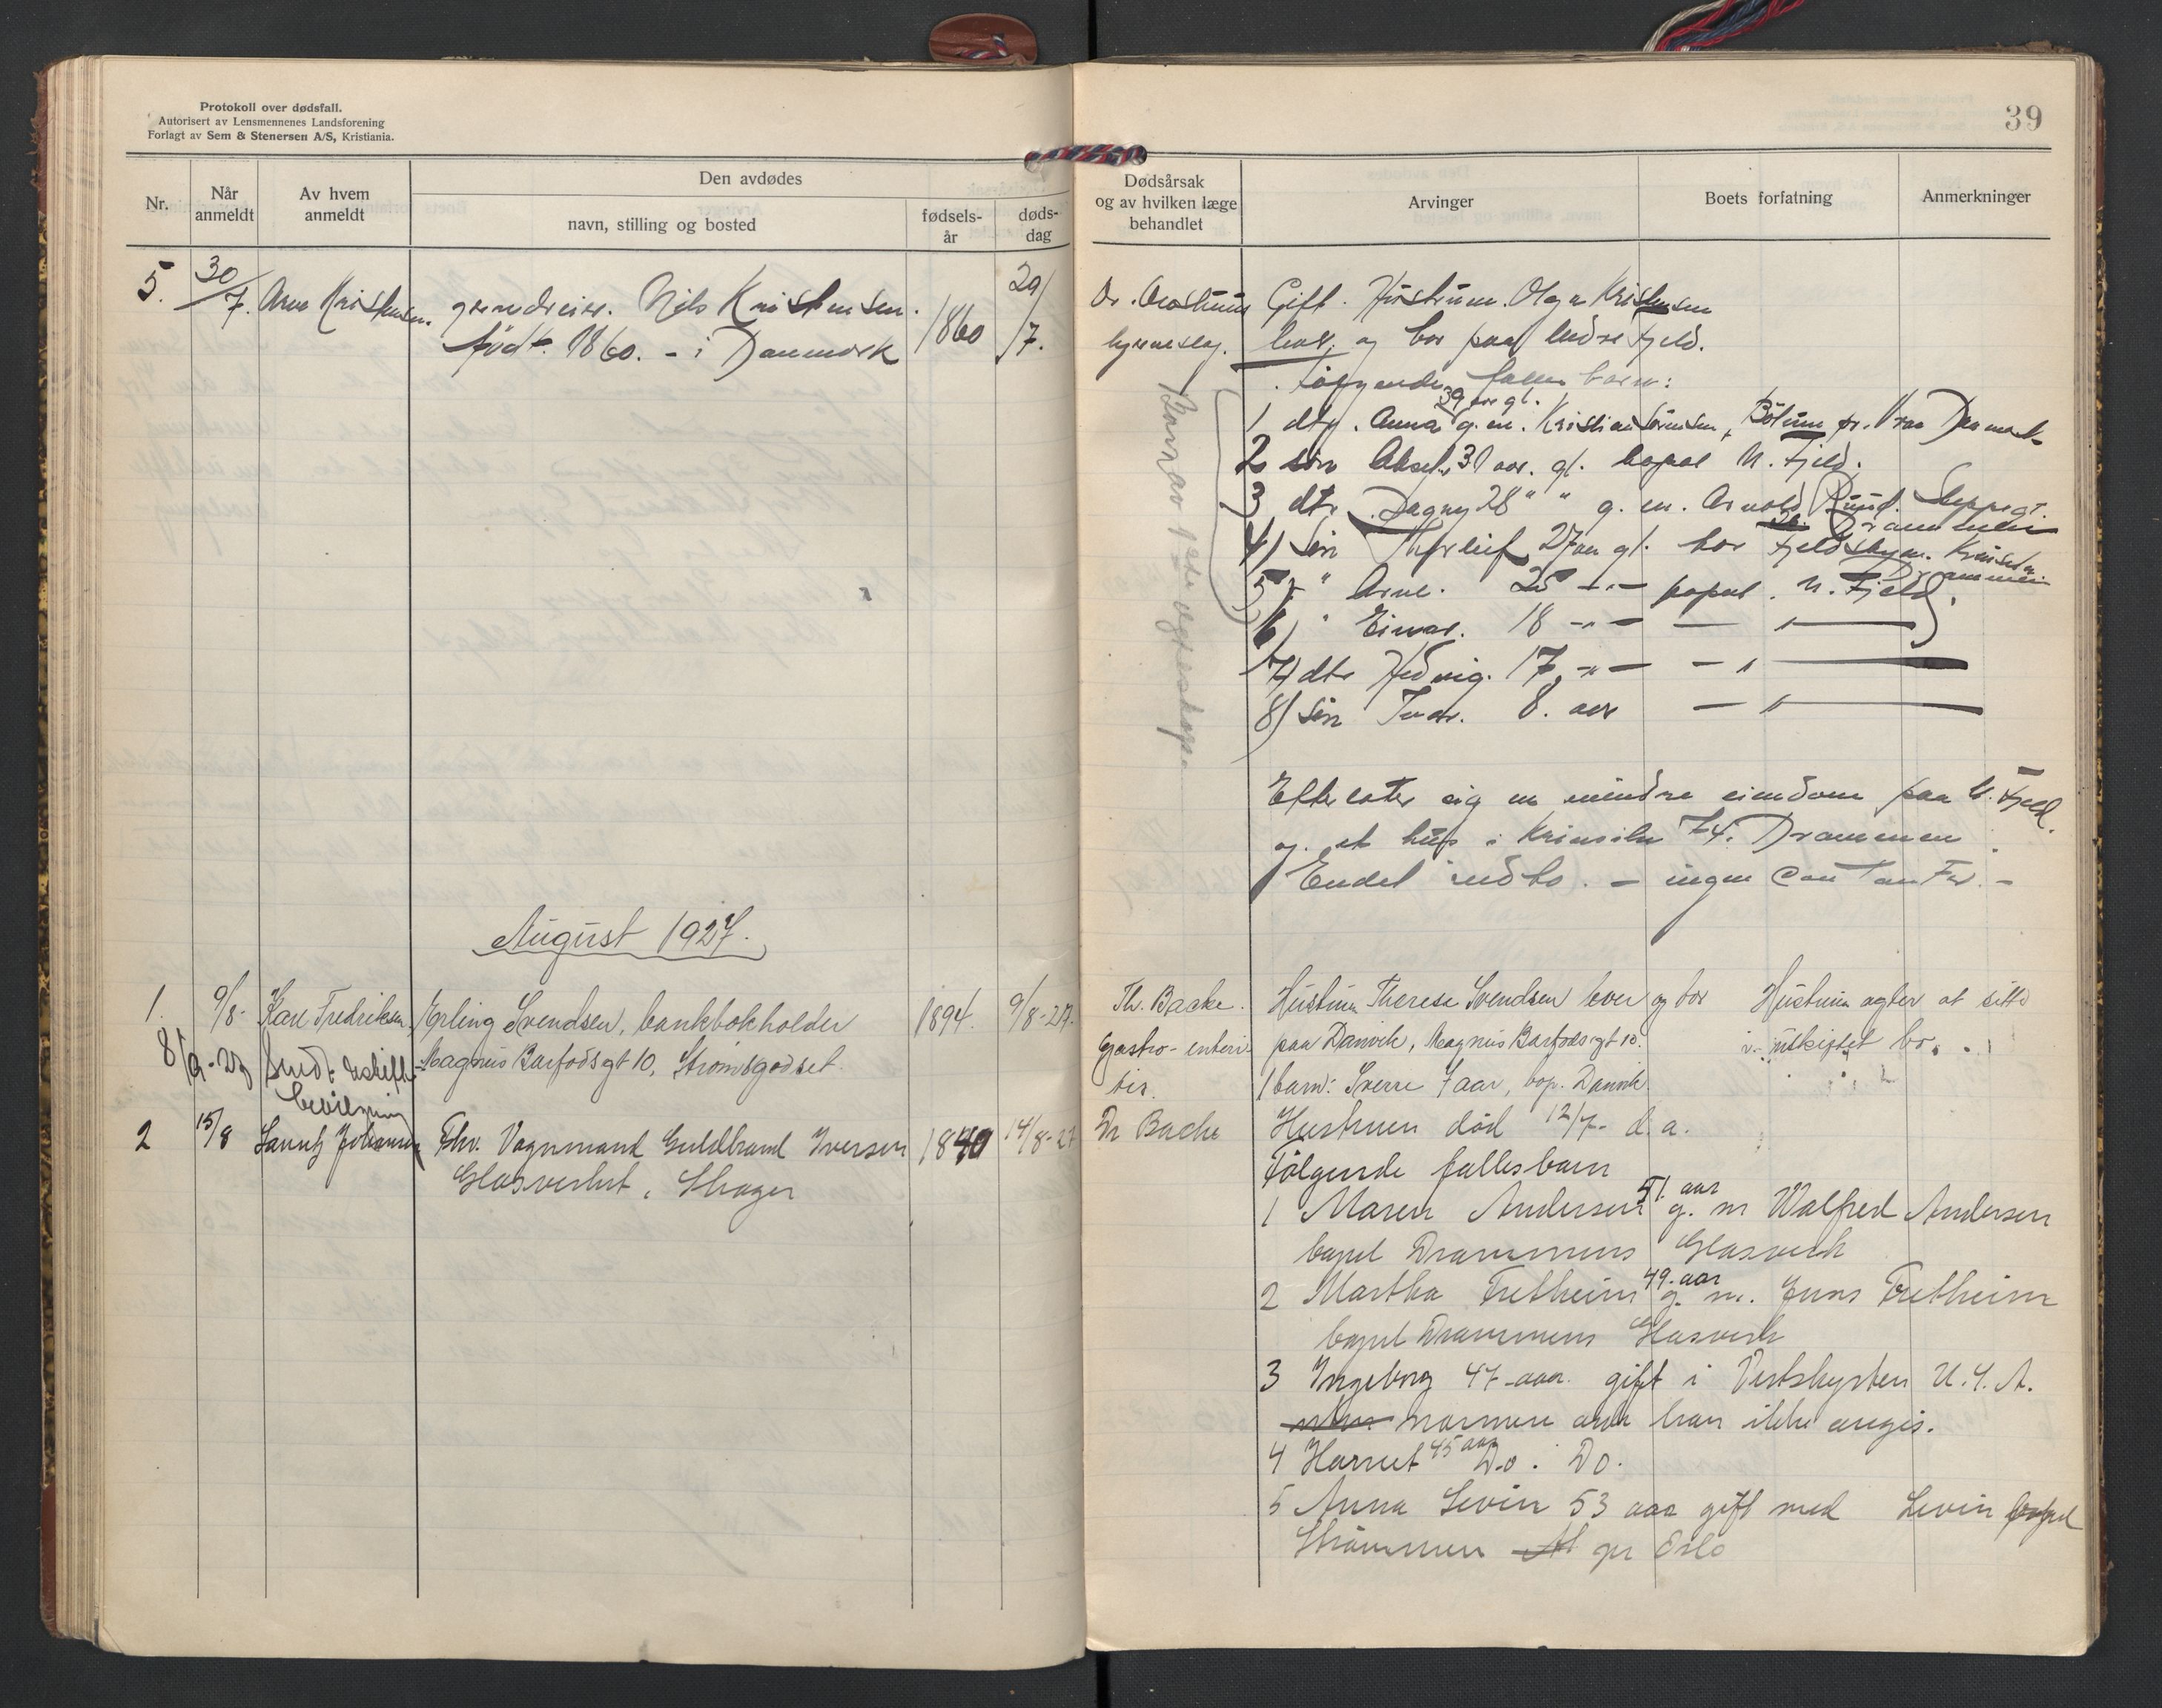 Protokoll over dødsfall.
Autorisert av Lensmennenes Landsforening
Forlagt av Sem & Stenersen A/S, Kristiania.
39
Nr.
Når anmeldt
Av hvem anmeldt
Den avdødes
navn, stilling og bosted
fødsels-år
døds-dag
Dødsårsak og av hvilken læge behandlet
Arvinger
Boets forfatning
Anmerkninger
5. 30/7. Arne Kristensen. Nils Kristensen. 1860 29/7.
født. 1860. - i Danmark
Gift. Hustruen. Olga Kristensen
lever, og bor paa Fjeld.
følgende fælles barn:
39 aar gl.
1 dtr. Anna g. m. Kristian Sørensen, pr. Vraa Danmark
2 søn Aksel, 31 aar. gl. bopæl N. Fjeld.
3 dtr. Dagny 28 " " g. m. Arnold
Drammen
4) Søn Thorleif 27 aar gl. bor
Drammen
5) " Arne. 25 -"- bopæl. N. Fjeld.
6) " Einar. 18 -"- — " —
7) dtr Hedvig. 17 -"- — " —
8) Søn Ivar. 8. aar — " —
Barn av 1ste egteskap
Efterlater sig en mindre eiendom paa N. Fjeld.
og et hus i 74. Drammen.
Endel indbo. - ingen contanter. -
August 1927.
1. 9/8- Karl Fredriksen, Erling Svendsen, bankbokholder 1894. 9/8-27.
Magnus Barfodsgt 10, Strømsgodset.
8/9-27 Sendt skifte
bevilgning
Th. Backe.
Gastro-enteri-
tis.
Hustruen Therese Svendsen lever og bor
paa Danvik, Magnus Barfodsgt 10.
1 barn: Sverre 7 aar, bop. Danvik
Hustruen agter at sitte
i uskiftet bo.
2 15/8 Johansen Fhv. Vognmand Guldbrand Iversen 1840 14/8-27
Glasverket, Skoger
Dr Backe
Hustruen død 12/7- d. a.
Følgende fællesbarn
51. aar
1 Maren Andersen g. m Walfred Andersen
bopel Drammens Glasverk
49-aar
2 Martha Fretheim g. m. Jens Fretheim
bopel Drammens Glasverk
3 Ingeborg 47-aar. gift i Vestkysten U.S.A.
nærmere adr kan ikke angis.
4 Harriet 45 aar Do. Do.
5 Anna Levin 53 aar gift med Levin bopel
Strømmen pr Oslo